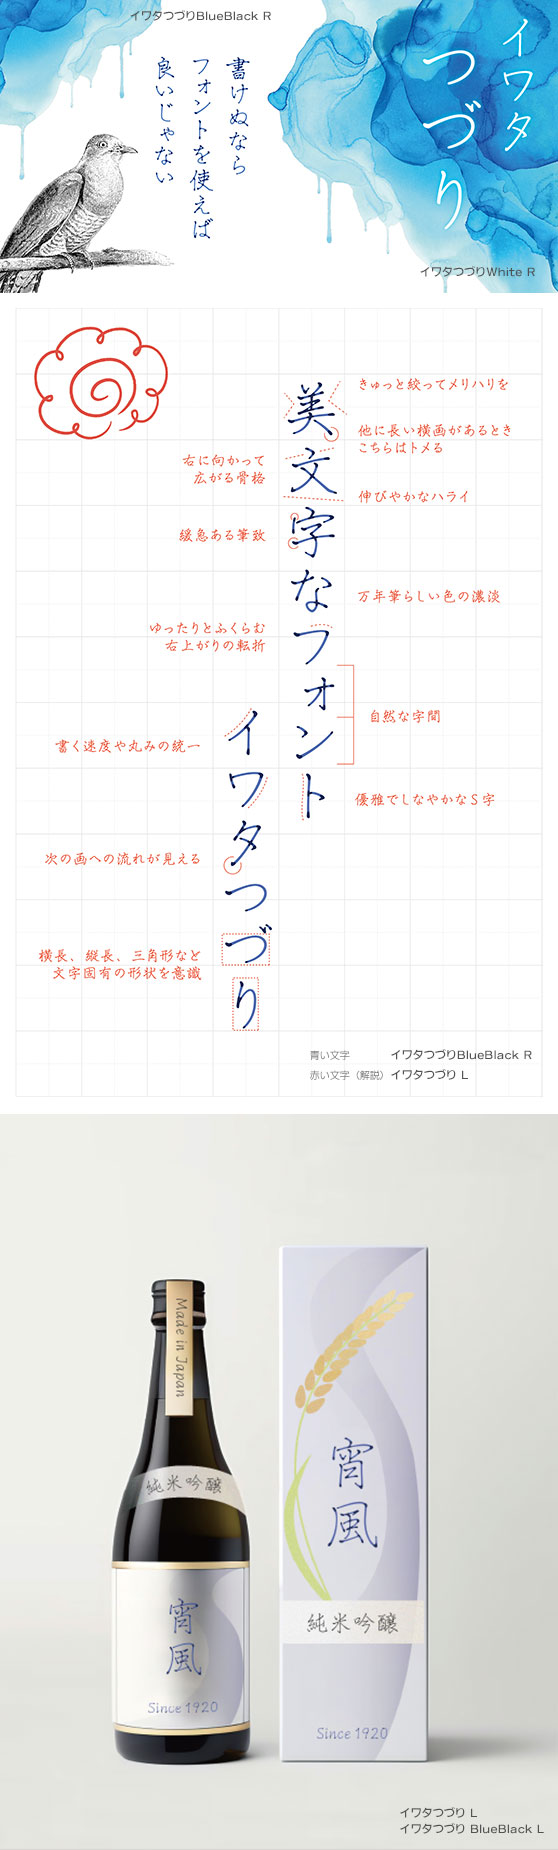 イワタつづりBlueBlack R
イワタ
つづり
書けぬなら
フォントを使えば
良いじゃない
イワタつづりWhite R
美文字なフォント
イワタつづり
きゅっと絞ってメリハリを
他に長い横画があるとき
こちらはトメる
右に向かって
広がる骨格
伸びやかなハライ
緩急ある筆致
万年筆らしい色の濃淡
ゆったりとふくらむ
右上がりの転折
自然な字間
書く速度や丸みの統一
優雅でしなやかなS字
次の画への流れが見える
横長、縦長、三角形など
文字固有の形状を意識
青い文字 イワタつづりBlueBlack R
赤い文字（解説）イワタつづり L
Made in Japan
純米吟醸
宵風
Since 1920
宵風
純米吟醸
Since 1920
イワタつづり L
イワタつづり BlueBlack L